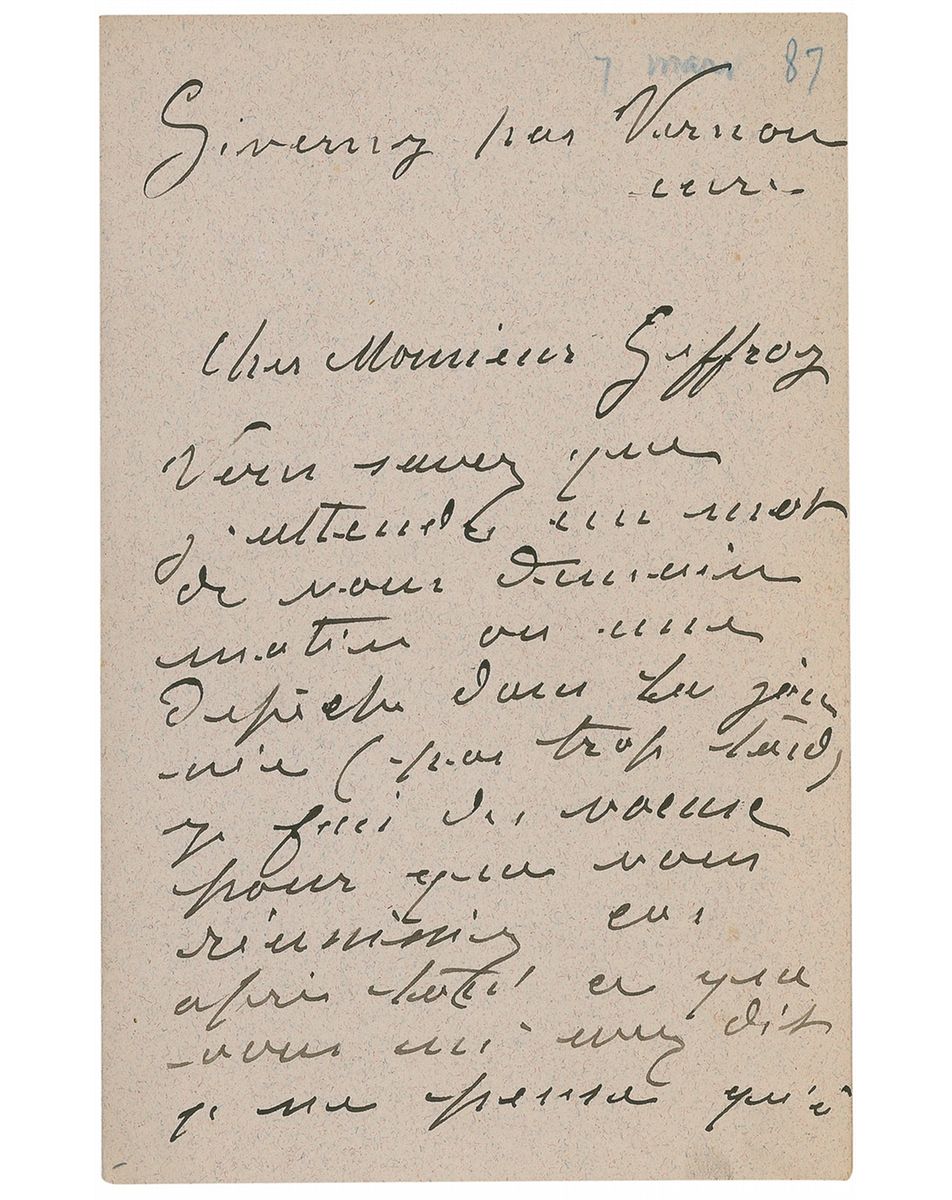 7 mars 87
Giverny par Vernon
eure
Cher Monsieur Geffroy
Vous savez que
j'attends un mot
de vous demain
matin ou une
depêche dans la jour
née (pas trop tard)
je fais des voeux
pour que vous
réussissiez car
après tout ce que
vous m'avez dit
je ne pense qu'à